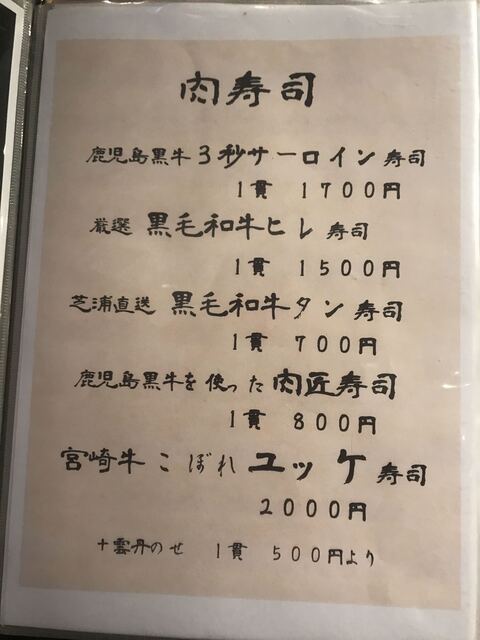 肉寿司
鹿児島黒牛 3秒サーロイン 寿司
1貫 1700円
厳選 黒毛和牛ヒレ 寿司
1貫 1500円
芝浦直送 黒毛和牛タン 寿司
1貫 700円
鹿児島黒牛を 使った 肉匠寿司
1貫 800円
宮崎牛 こぼれ ユッケ 寿司
2000円
+雲丹のせ 1貫 500円より